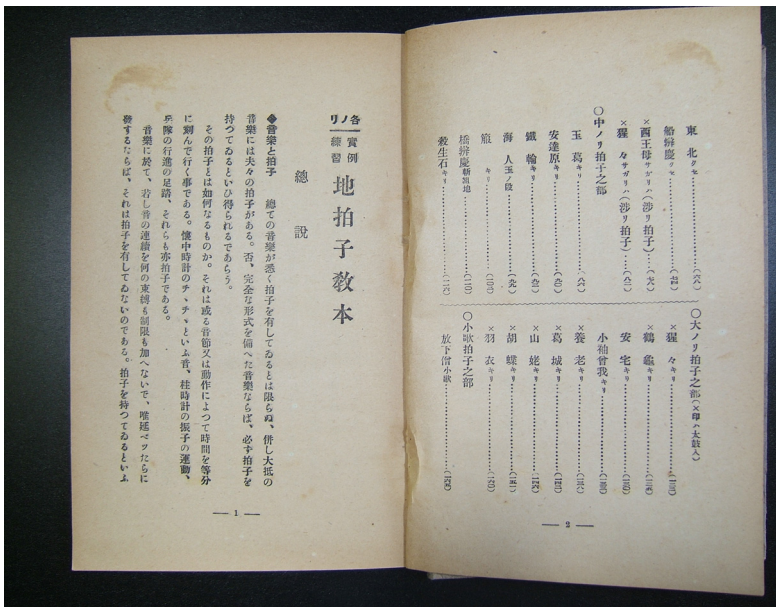 東北クセ
船辨慶クセ
×西王母サガリハ(渉リ拍子)
×猩々サガリハ(渉リ拍子)
〇中ノリ拍子之部
玉葛キリ
安達原キリ
鐵輪キリ
海人玉ノ段
箙キリ
橋辨慶
殺生石キリ
〇大ノリ拍子之部(×印ハ太鼓入)
×猩々キリ
×鶴龜キリ
安宅キリ
小袖曾我キリ
×養老キリ
×葛城キリ
×山姥キリ
×胡蝶キリ
×羽衣キリ
〇小歌拍子之部
放下僧小歌
— 2 —
各ノリ
實例
練習
地拍子敎本
總說
◆音樂と拍子 總ての音樂が悉く拍子を有してゐるとは限らぬ、併し大抵の
音樂には夫々の拍子がある。否、完全な形式を備へた音樂ならば、必ず拍子を
持つてゐるといひ得られるであらう。
その拍子とは如何なるものか。それは或る音節又は動作によつて時間を等分
に刻んで行く事である。懷中時計のチ、チ、といふ音、柱時計の振子の運動、
兵隊の行進の足踏、それらも亦拍子である。
音樂に於て、若し音の連續を何の束縛も制限も加へないで、唯延ベツたらに
發するならば、それは拍子を有してゐないのである。拍子を持つてゐるといふ
— 1 —